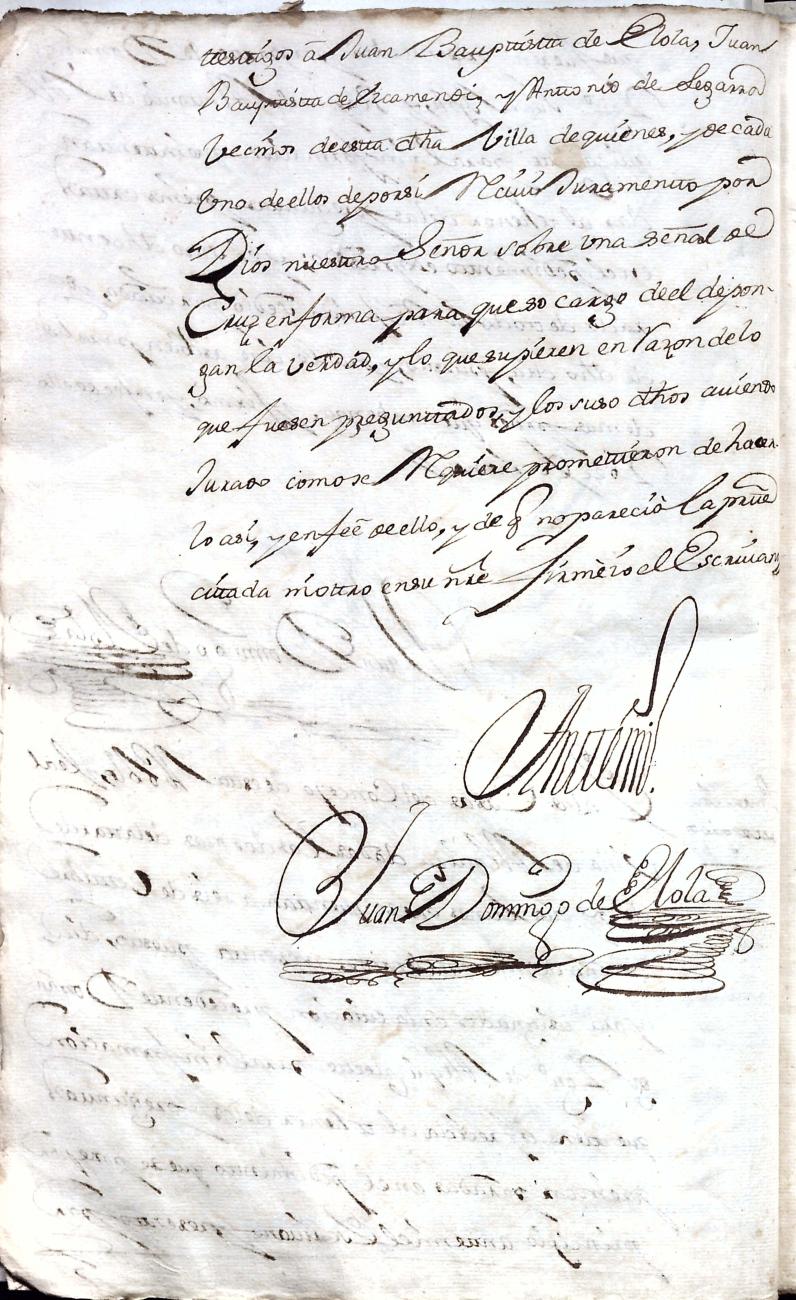 testigos â Juan Baptista de Elola, Juan
Baptista de Ycamendi, y Antonio de Legarra
Vecinos de esta dha Villa de quienes, y de cada
Uno de ellos de por si Reciui Juramento por
Dios nuestro Señor sobre una señal de
Cruz en forma para que so cargo de el depon-
gan la verdad, y lo que supieren en razon de lo
que fuesen preguntados, y los suso dhos auiendo
Jurado como se Requiere prometieron de hacer
lo asi, y en feê de ello, y de q no pareciò la
citada ni otro en su nre firmè io el Escriuano
Antemi
Juan Domingo de Elola